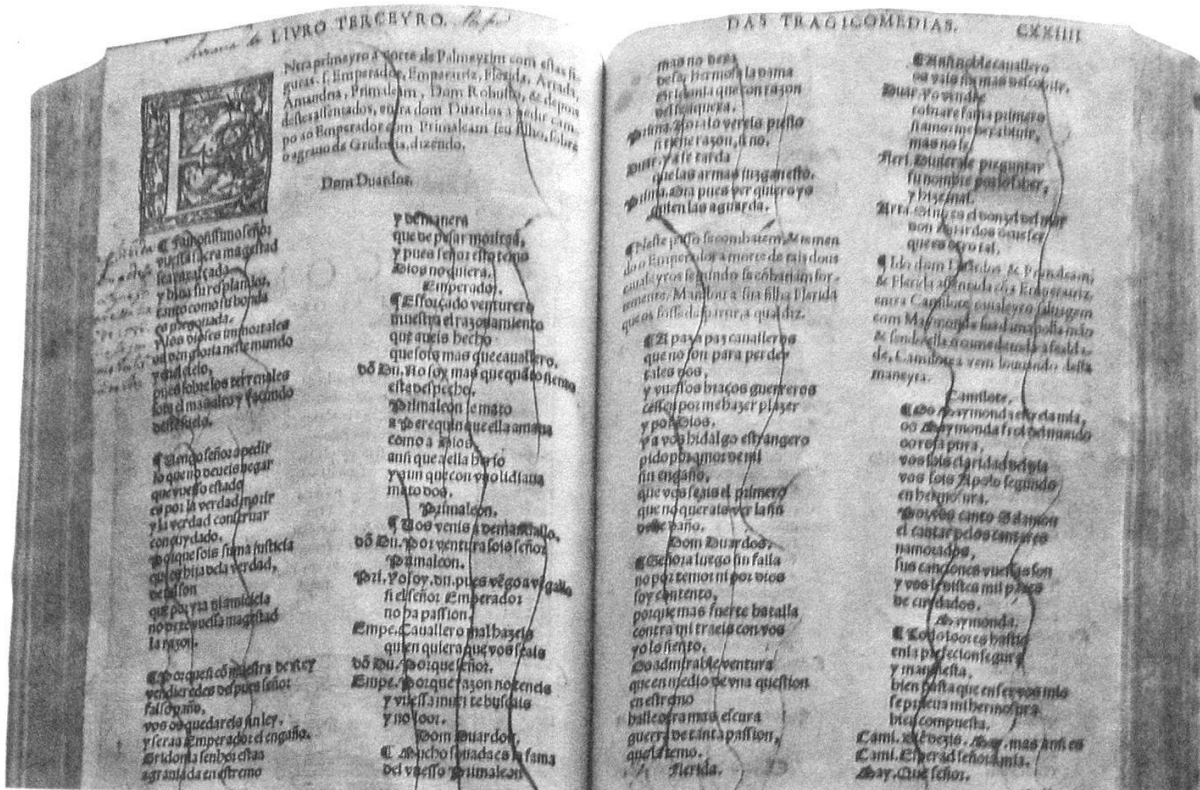 LIVRO TERCEYRO.
Ntra primeyro a corte de Palmeyrim com estas fi-
guras. s. Emperador, Emperatriz, Flerida, Artada,
Amandria, Primaleam, Dom Robusto, & depois
destes assentados, entra dom Duardos a pedir cam
po ao Emperador com Primaleam seu filho, sobre
o agravo de Gridonia, dizendo.
Dom Duardos.
¶ Famosissimo señor
vuestra sacra magestad
sea ensalçada
y biva su resplandor,
tanto como su bondad
es pregonada.
y los dioses immortales
os den gloria neste mundo
y en el cielo,
pues sobre los terrenales
sois el mas alto y facundo
deste suelo.
¶ Vengo señor a pedir
lo que no deveis negar
que vuestro estado
es por la verdad morir
y la verdad conservar
con cuydado.
Porque sois suma justicia
que es hija de la verdad,
de tal son
que por yra ni amicicia
no dexe vuessa magestad
la razon.
¶ Porque si cõ muestra de rey
vendieredes despues señor
falso paño,
vos os quedareis sin ley,
y sera Emperador el engaño.
Gridonia senhor estaa
agraviada en estremo
y de manera
que de pesar morira,
y pues señor esto temo
Dios no quiera.
Emperador.
¶ Esforçado venturero
muestra el razonamiento
que aveis hecho
que sois mas que cavallero,
dõ Du. No soy mas que quãto siento
este despecho.
Primaleon se mato
a Perequin que ella amava
como a Dios
ansi que a ella herio
y aun que con vno lidiava
mato dos.
Primaleon.
¶ Vos venis a demandallo,
dõ Du. Por ventura sois señor
Primaleon.
Pri. Yo soy. Du. pues vẽgo a vẽgallo
si el señor Emperador
no ha passion.
Empe. Cavallero mal hazeis
quien quiera que vos seais
dõ Du. Porque señor.
Empe. Porque razon no teneis
y vuessa muerte buscais
y no loor.
Dom Duardos.
¶ Mucho sonada es la fama
del vuesso Primaleon
DAS TRAGICOMEDIAS. CXXIIII
mas no dexa
de ser hermosa la dama
Gridonia que con razon
del se quexa.
Prima. Notato vereis presto
si tiene razon, si no.
Duar. Ya se tarda
que las armas juzguen esto.
Prima. Ora pues ver quiero yo
quien las aguarda.
¶ Neste passo se combatem, & temen
do o Emperador a morte de tais dous
cavaleyros segundo se cobatiam for-
temente, Mandou a sua filha Flerida
que os fosse departir, a qual diz.
¶ A paz a paz cavalleros
que no son para perder
tales dos,
y vuessos braços guerreros
cessen por me hazer plazer
y por Dios.
Y a vos hidalgo estrangero
pido por amor de mi
sin engaño,
que vos seais el primero
que no querais ver la fin
deste daño.
Dom Duardos.
¶ Señora luego sin falla
no por temor ni por vios
soy contento,
porque mas fuerte batalla
contra mi traeis con vos
yo lo siento.
Oo admirable ventura
que en medio de vna question
en estremo
halle otra mas escura
guerra de tanta passion,
que la temo.
Flerida.
¶ Tan noble cavallero
os vais sin mas descubrir,
Duar. Yo vendre
cobrare fama primero
si amor me dexa bivir,
mas no se.
Fleri. Quierale preguntar
su nombre por lo saber,
y hize mal.
Arta. Sino es el donzel del mar
don Duardos deve ser
que es otro tal.
¶ Ido dom Duardos, & Primaleam,
& Flerida assentada cõ a Emperatriz,
entra Camilote cavaleyro salvagem
com Maymonda sua dama pola mão
& sendo ella o cume de toda a fealda-
de, Camilote a vem louvando desta
maneyra.
Camilote.
¶ Oo Maymonda estrela mia,
oo Maymonda frol del mundo
oo rosa pura,
vos sois claridad del dia
vos sois Apolo segundo
en hermosura.
Por vos canto Salamon
el cantar de los cantares
namorados,
sus canciones vuessas son
y vos le distes mil pares
de cuydados.
Maymonda.
¶ Todo loor es hastio
en la perfecion segura
y manifiesta,
bien basta que en ser vos mio
se prueva mi hermosura
bien compuesta.
Cami. Que dezis. May. mas ansi es
Cami. Esperad señora mia.
May. Que señor.